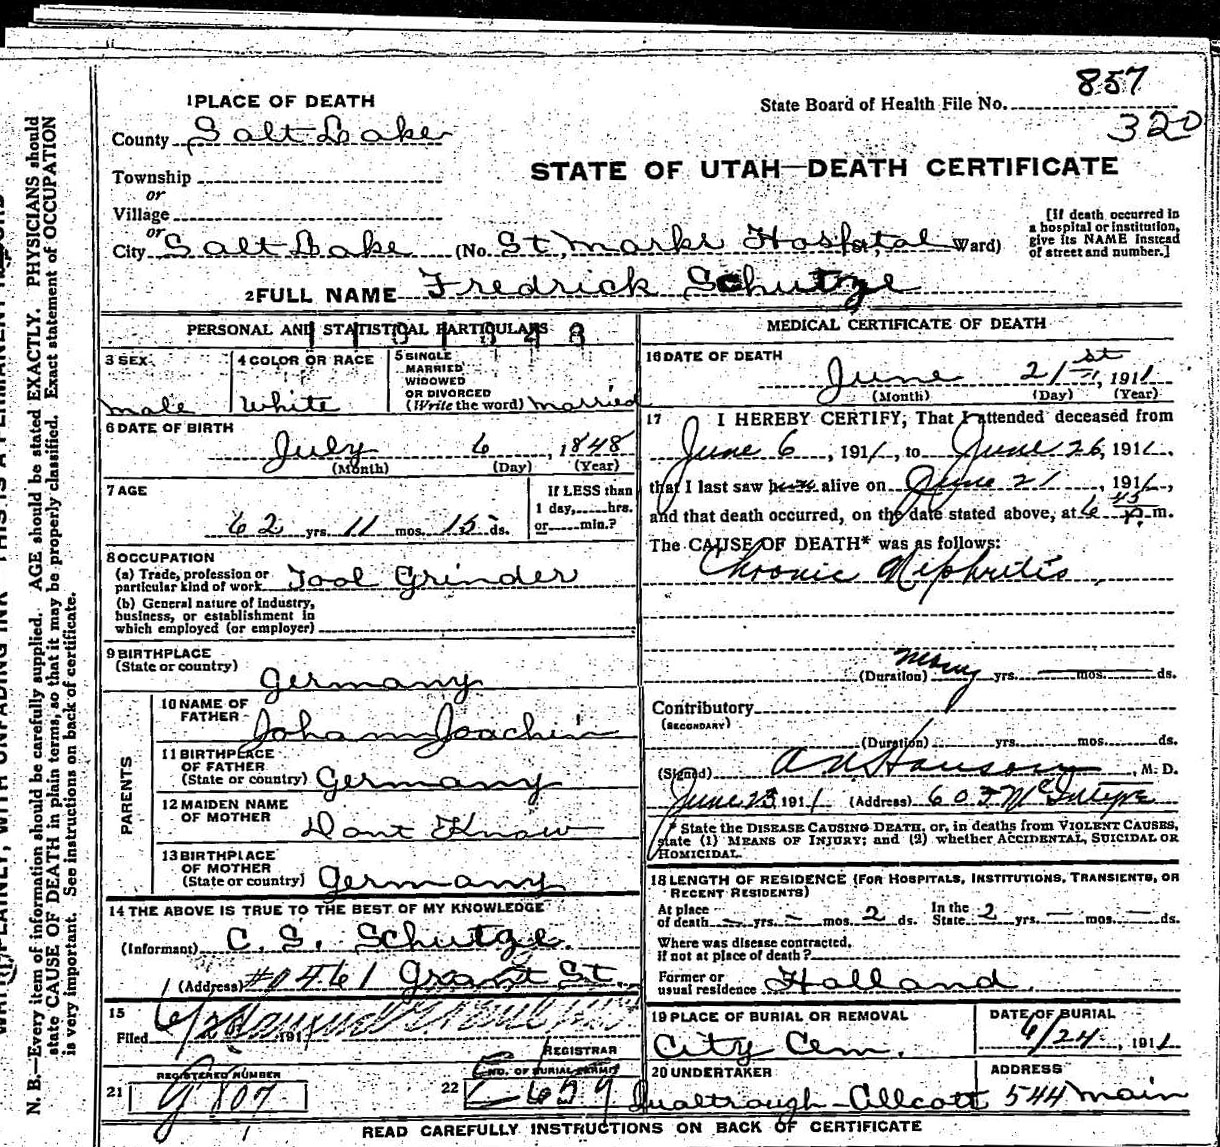 857
State Board of Health File No.
320
1 PLACE OF DEATH
County Salt Lake
STATE OF UTAH—DEATH CERTIFICATE
Township
or
Village
or
City Salt Lake (No. St Marks Hospital St., Ward)
[If death occurred in
a hospital or institution,
give its NAME instead
of street and number.]
2 FULL NAME Fredrick Schutze
PERSONAL AND STATISTICAL PARTICULARS
3 SEX
male
4 COLOR OR RACE
White
5 SINGLE
MARRIED
WIDOWED
OR DIVORCED
(Write the word) married
6 DATE OF BIRTH
July 6, 1848
(Month) (Day) (Year)
7 AGE
62 yrs. 11 mos. 15 ds.
If LESS than
1 day,.....hrs.
or.....min.?
8 OCCUPATION
(a) Trade, profession or
particular kind of work Tool Grinder
(b) General nature of industry,
business, or establishment in
which employed (or employer)
9 BIRTHPLACE
(State or country)
Germany
PARENTS
10 NAME OF
FATHER
Johann Joachin
11 BIRTHPLACE
OF FATHER
(State or country) Germany
12 MAIDEN NAME
OF MOTHER
Dont Know
13 BIRTHPLACE
OF MOTHER
(State or country) Germany
14 THE ABOVE IS TRUE TO THE BEST OF MY KNOWLEDGE
(Informant) C. S. Schutze.
(Address) #0461 Grant St.
15
Filed 191
REGISTRAR
REGISTERED NUMBER
21
NO. OF BURIAL PERMIT
22
MEDICAL CERTIFICATE OF DEATH
16 DATE OF DEATH
June 21st, 1911
(Month) (Day) (Year)
17 I HEREBY CERTIFY, That I attended deceased from
June 6, 1911, to June 26, 1911,
that I last saw him alive on June 21, 1911,
and that death occurred, on the date stated above, at 6 45 p. m.
The CAUSE OF DEATH* was as follows:
Chronic Nephritis
(Duration) many yrs. mos. ds.
Contributory
(SECONDARY)
(Duration) yrs. mos. ds.
(Signed) , M. D.
June 23, 1911 (Address) McIntyre
* State the DISEASE CAUSING DEATH, or, in deaths from VIOLENT CAUSES,
state (1) MEANS OF INJURY; and (2) whether ACCIDENTAL, SUICIDAL OR
HOMICIDAL.
18 LENGTH OF RESIDENCE (FOR HOSPITALS, INSTITUTIONS, TRANSIENTS, OR
RECENT RESIDENTS)
At place
of death — yrs. — mos. 2 ds.
In the
State 2 yrs. — mos. — ds.
Where was disease contracted,
if not at place of death?
Former or
usual residence Holland
19 PLACE OF BURIAL OR REMOVAL
City Cem.
DATE OF BURIAL
6/24, 1911
20 UNDERTAKER
ADDRESS
544 Main
READ CAREFULLY INSTRUCTIONS ON BACK OF CERTIFICATE
N. B.—Every item of information should be carefully supplied. AGE should be stated EXACTLY. PHYSICIANS should
state CAUSE OF DEATH in plain terms, so that it may be properly classified. Exact statement of OCCUPATION
is very important. See instructions on back of certificate.